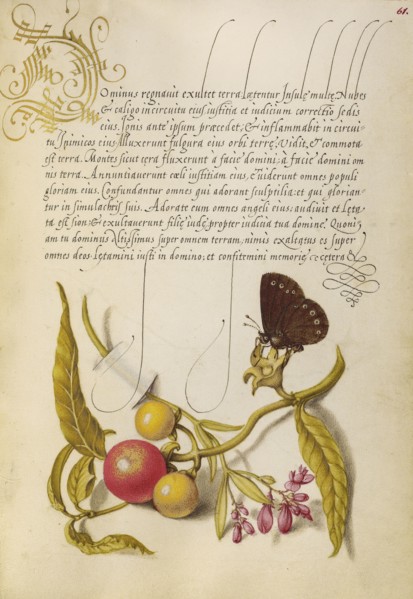 61.
Dominus regnavit exultet terra Lætentur Insulę multę. Nubes
& caligo in circuitu eius iustitia et iudicium correctio sedis
eius. Ignis ante ipsum præcedet, & inflammabit in circui-
tu Inimicos eius Illuxerunt fulgura eius orbi terrę, Vidit, & commota
est terra. Montes sicut cera fluxerunt à facie domini: à facie domini om
nis terra. Annuntiaverunt cœli iustitiam eius, & viderunt omnes populi
gloriam eius. Confundantur omnes qui adorant sculptilia: et qui glorian-
tur in simulachris suis. Adorate eum omnes angeli eius: audivit et Lęta-
ta est sion: & exultaverunt filię iudę propter iudicia tua domine. Quoni-
am tu dominus altissimus super omnem terram, nimis exaltatus es super
omnes deos. Lętamini iusti in domino: et confitemini memorię &cetera